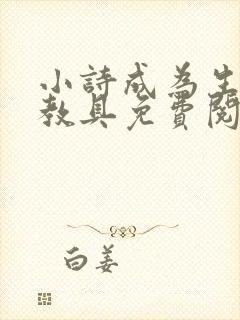 小詩成為生
教具免費閱
白姜